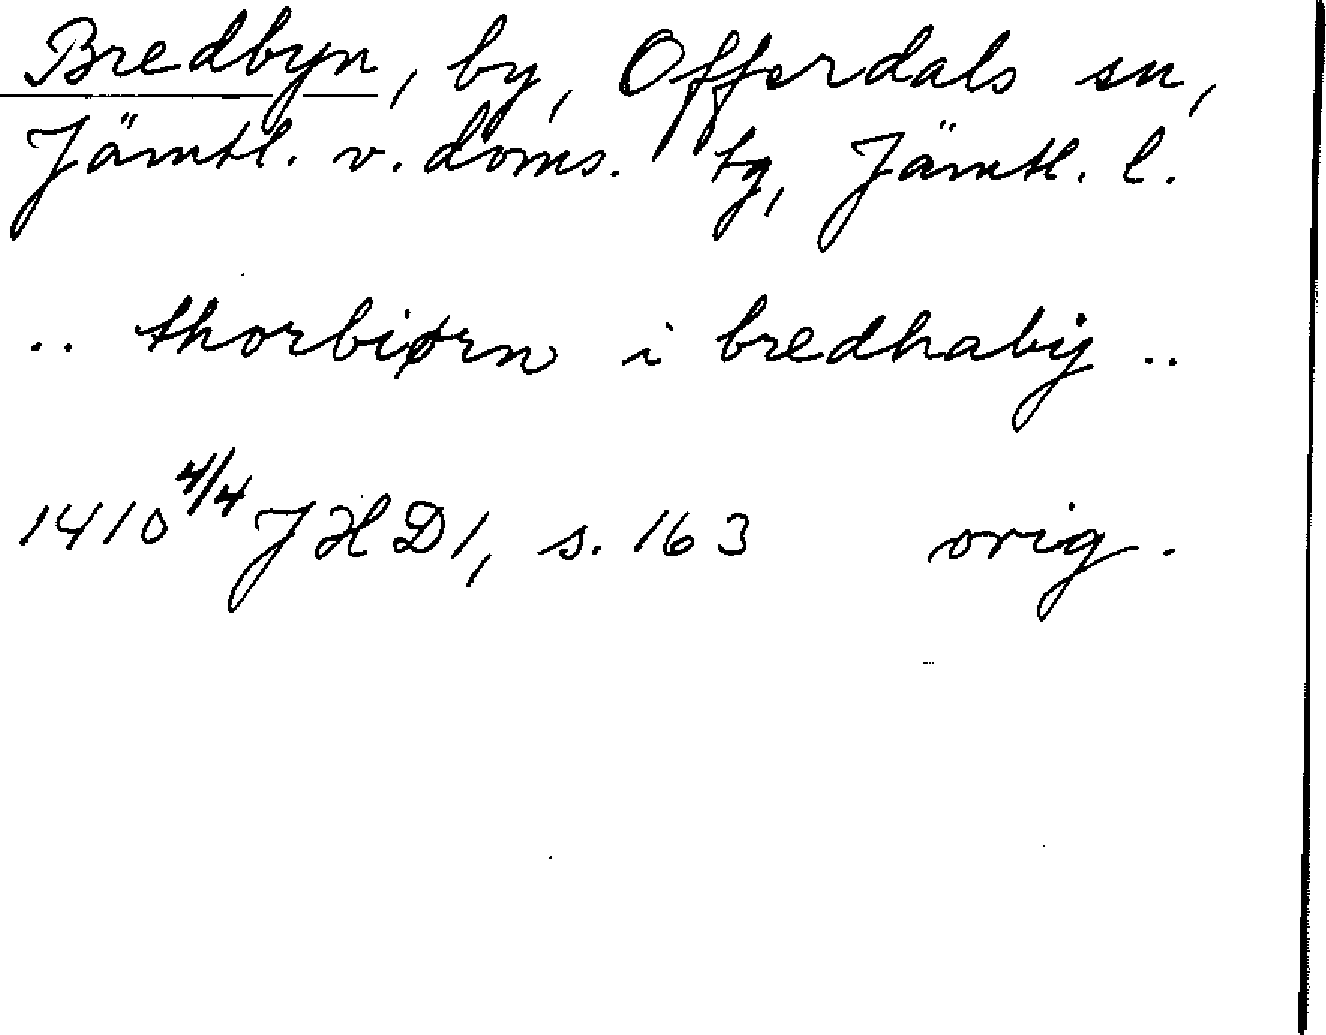 Bredbyn, by, Offerdals sn,
Jämtl. v. doms. tg, Jämtl. l.
.. thorbiørn i bredhaby ..
1410 4/4 JHD1, s. 163 orig.